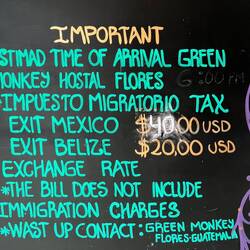 IMPORTANT
STIMAD TIME OF ARRIVAL GREEN
MONKEY HOSTAL FLORES 6:00 PM
IMPUESTO MIGRATORIO TAX
EXIT MEXICO $40.00 USD
EXIT BELIZE $20.00 USD
EXCHANGE RATE
*THE BILL DOES NOT INCLUDE
IMMIGRATION CHARGES
*WAST UP CONTACT: GREEN MONKEY
FLORES-GUATEMALA